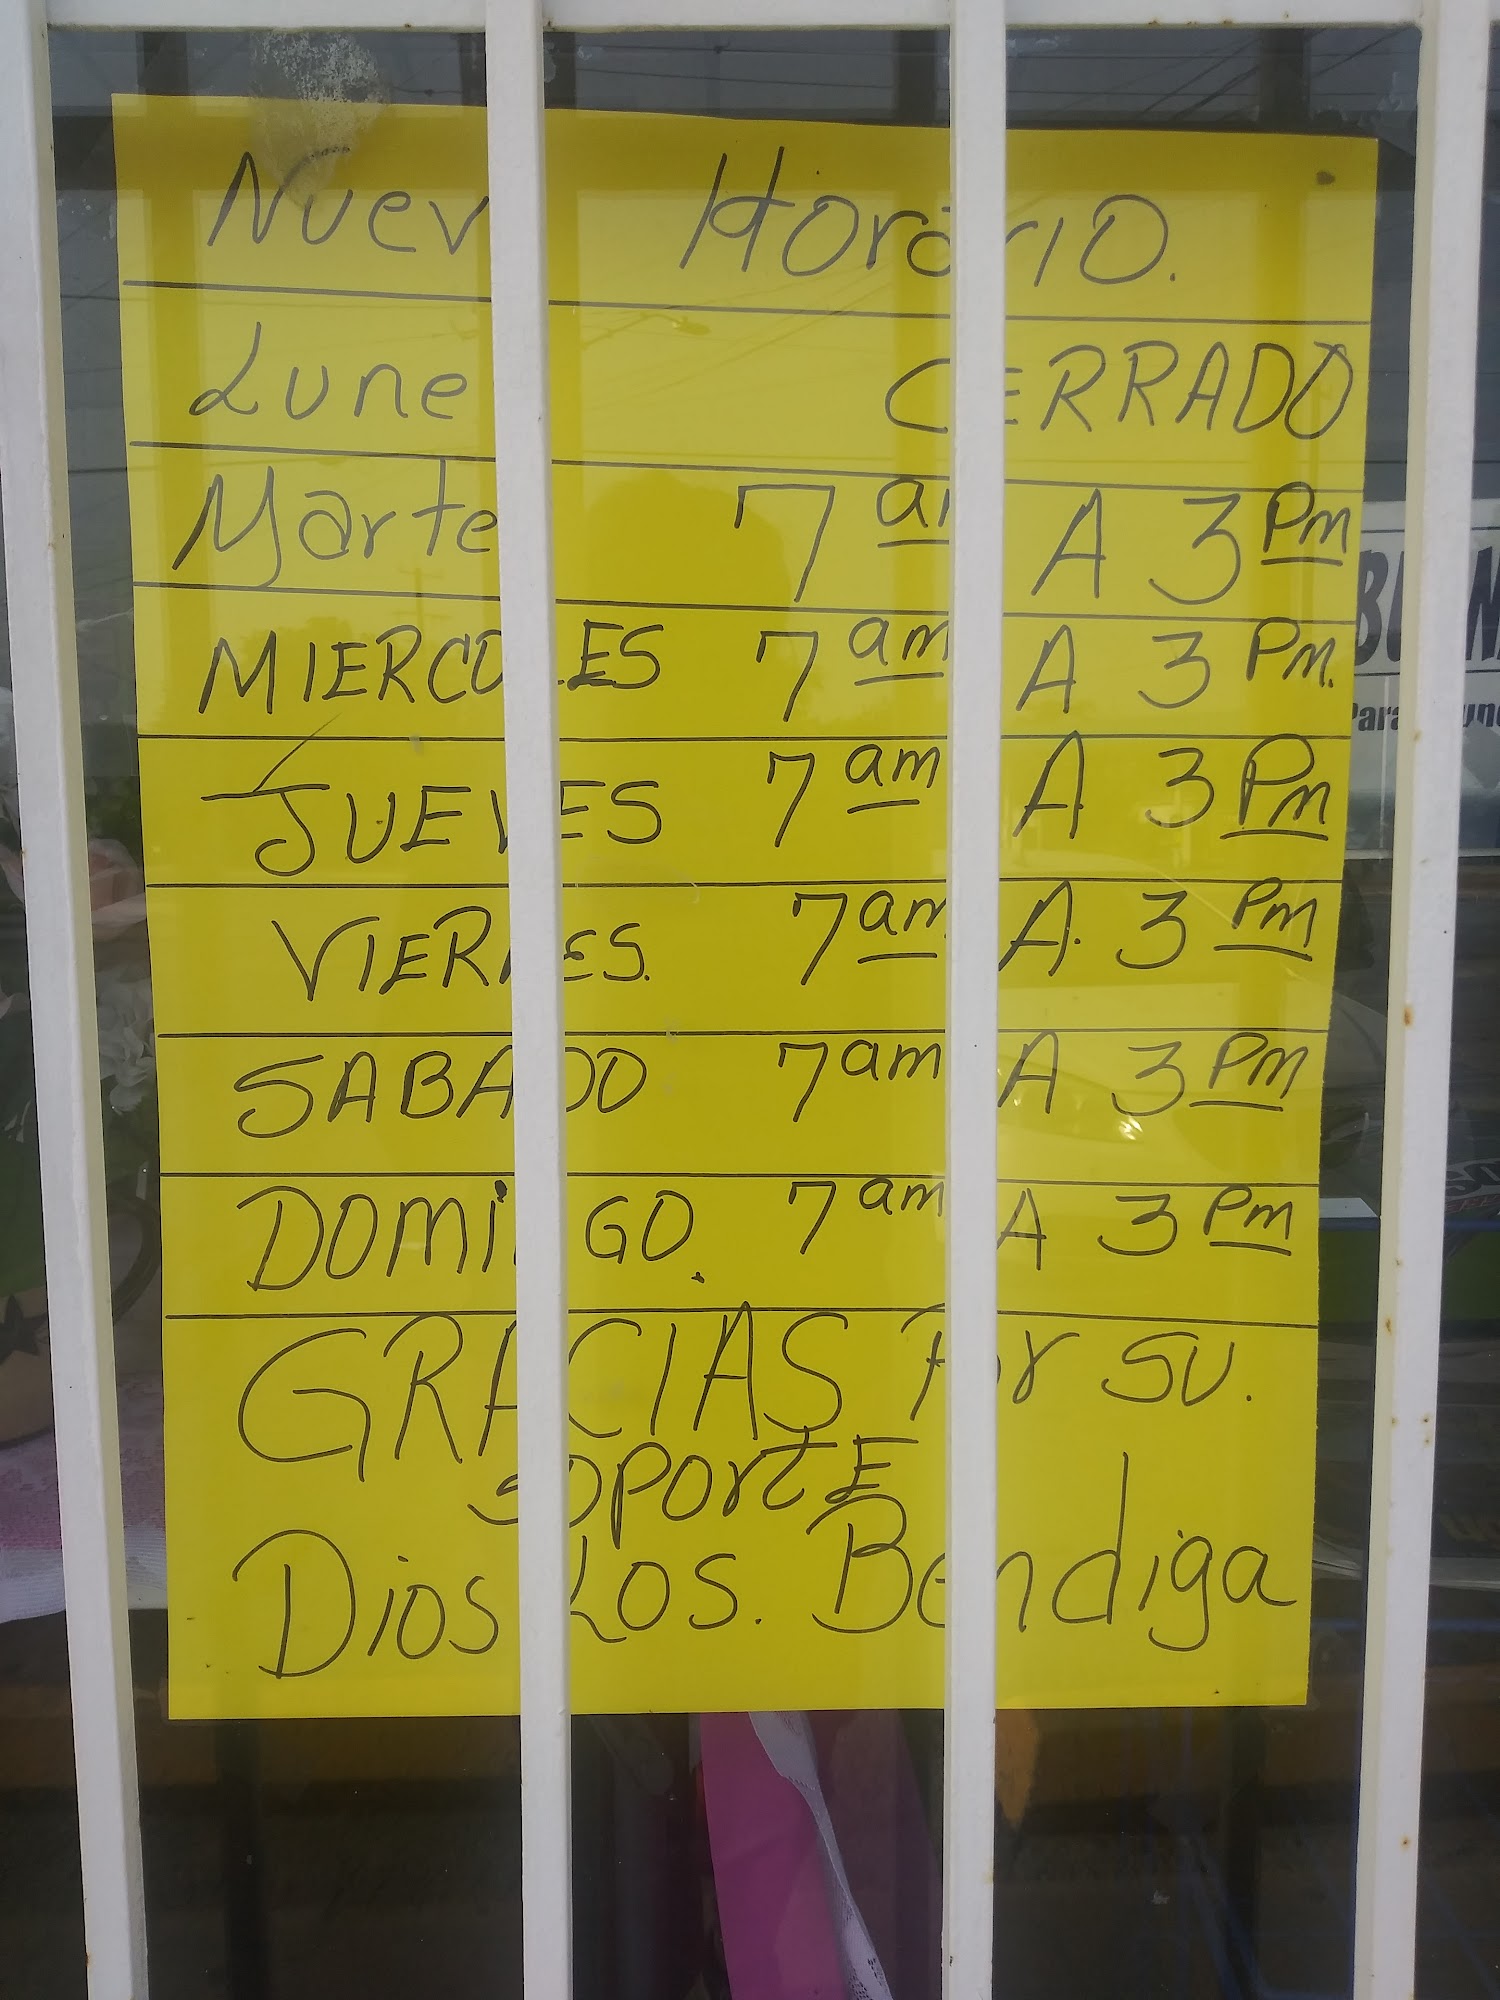 Nuev Horario.
Lune CERRADO
Marte 7 am A 3 Pm
MIERCOLES 7 am A 3 Pm.
JUEVES 7 am A 3 Pm
VIERNES. 7 am A. 3 Pm
SABADO 7 am A 3 Pm
DOMINGO. 7 am A 3 Pm
GRACIAS Por SU.
SOPORTE
Dios Los. Bendiga